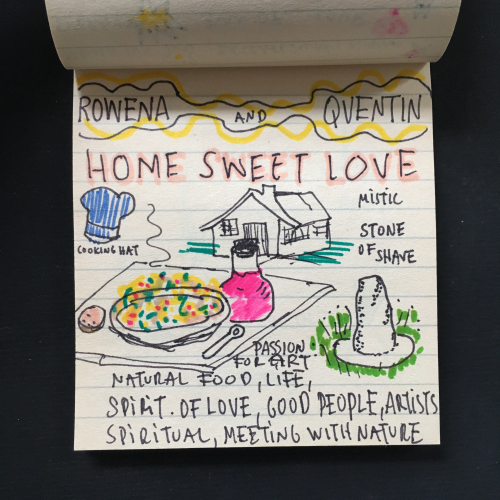 ROWENA AND QVENTIN
HOME SWEET LOVE
MISTIC
STONE
OF SHAVE
COOKING HAT
PASSION
FOR ART
NATURAL FOOD, LIFE,
SPIRIT. OF LOVE, GOOD PEOPLE, ARTISTS
SPIRITUAL, MEETING WITH NATURE